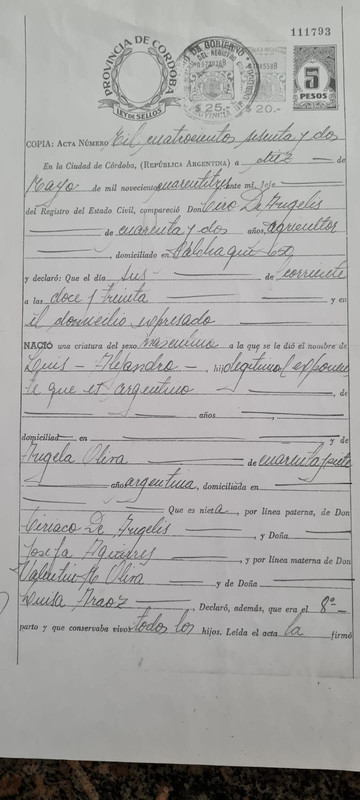 111793
PROVINCIA DE CORDOBA
LEY DE SELLOS
$ 25.-
PROVINCIA
$ 20.-
5
PESOS
COPIA: ACTA NÚMERO Mil cuatrocientos sesenta y dos
En la Ciudad de Córdoba, (REPÚBLICA ARGENTINA) a diez de
Mayo de mil novecientos cuarentitres ante mí, Jefe
del Registro del Estado Civil, compareció Don Ciro De Angelis
de cuarenta y dos años, agricultor
, domiciliado en
y declaró: Que el día seis de corriente
a las doce y treinta y en
el domicilio expresado
NACIÓ una criatura del sexo masculino a la que se le dió el nombre de
Luis - Alejandro -, hijo legítimo del exponen
te que es argentino , de
años
domiciliad en y de
Angela Oliva de cuarenta
años argentina, domiciliada en
Que es nieto, por línea paterna, de Don
Ciriaco De Angelis , y Doña
Josefa , y por línea materna de Don
Valentin R. Oliva y de Doña
Luisa Araoz , Declaró, además, que era el 8º
parto y que conservaba vivos todos los hijos. Leída el acta la firmó